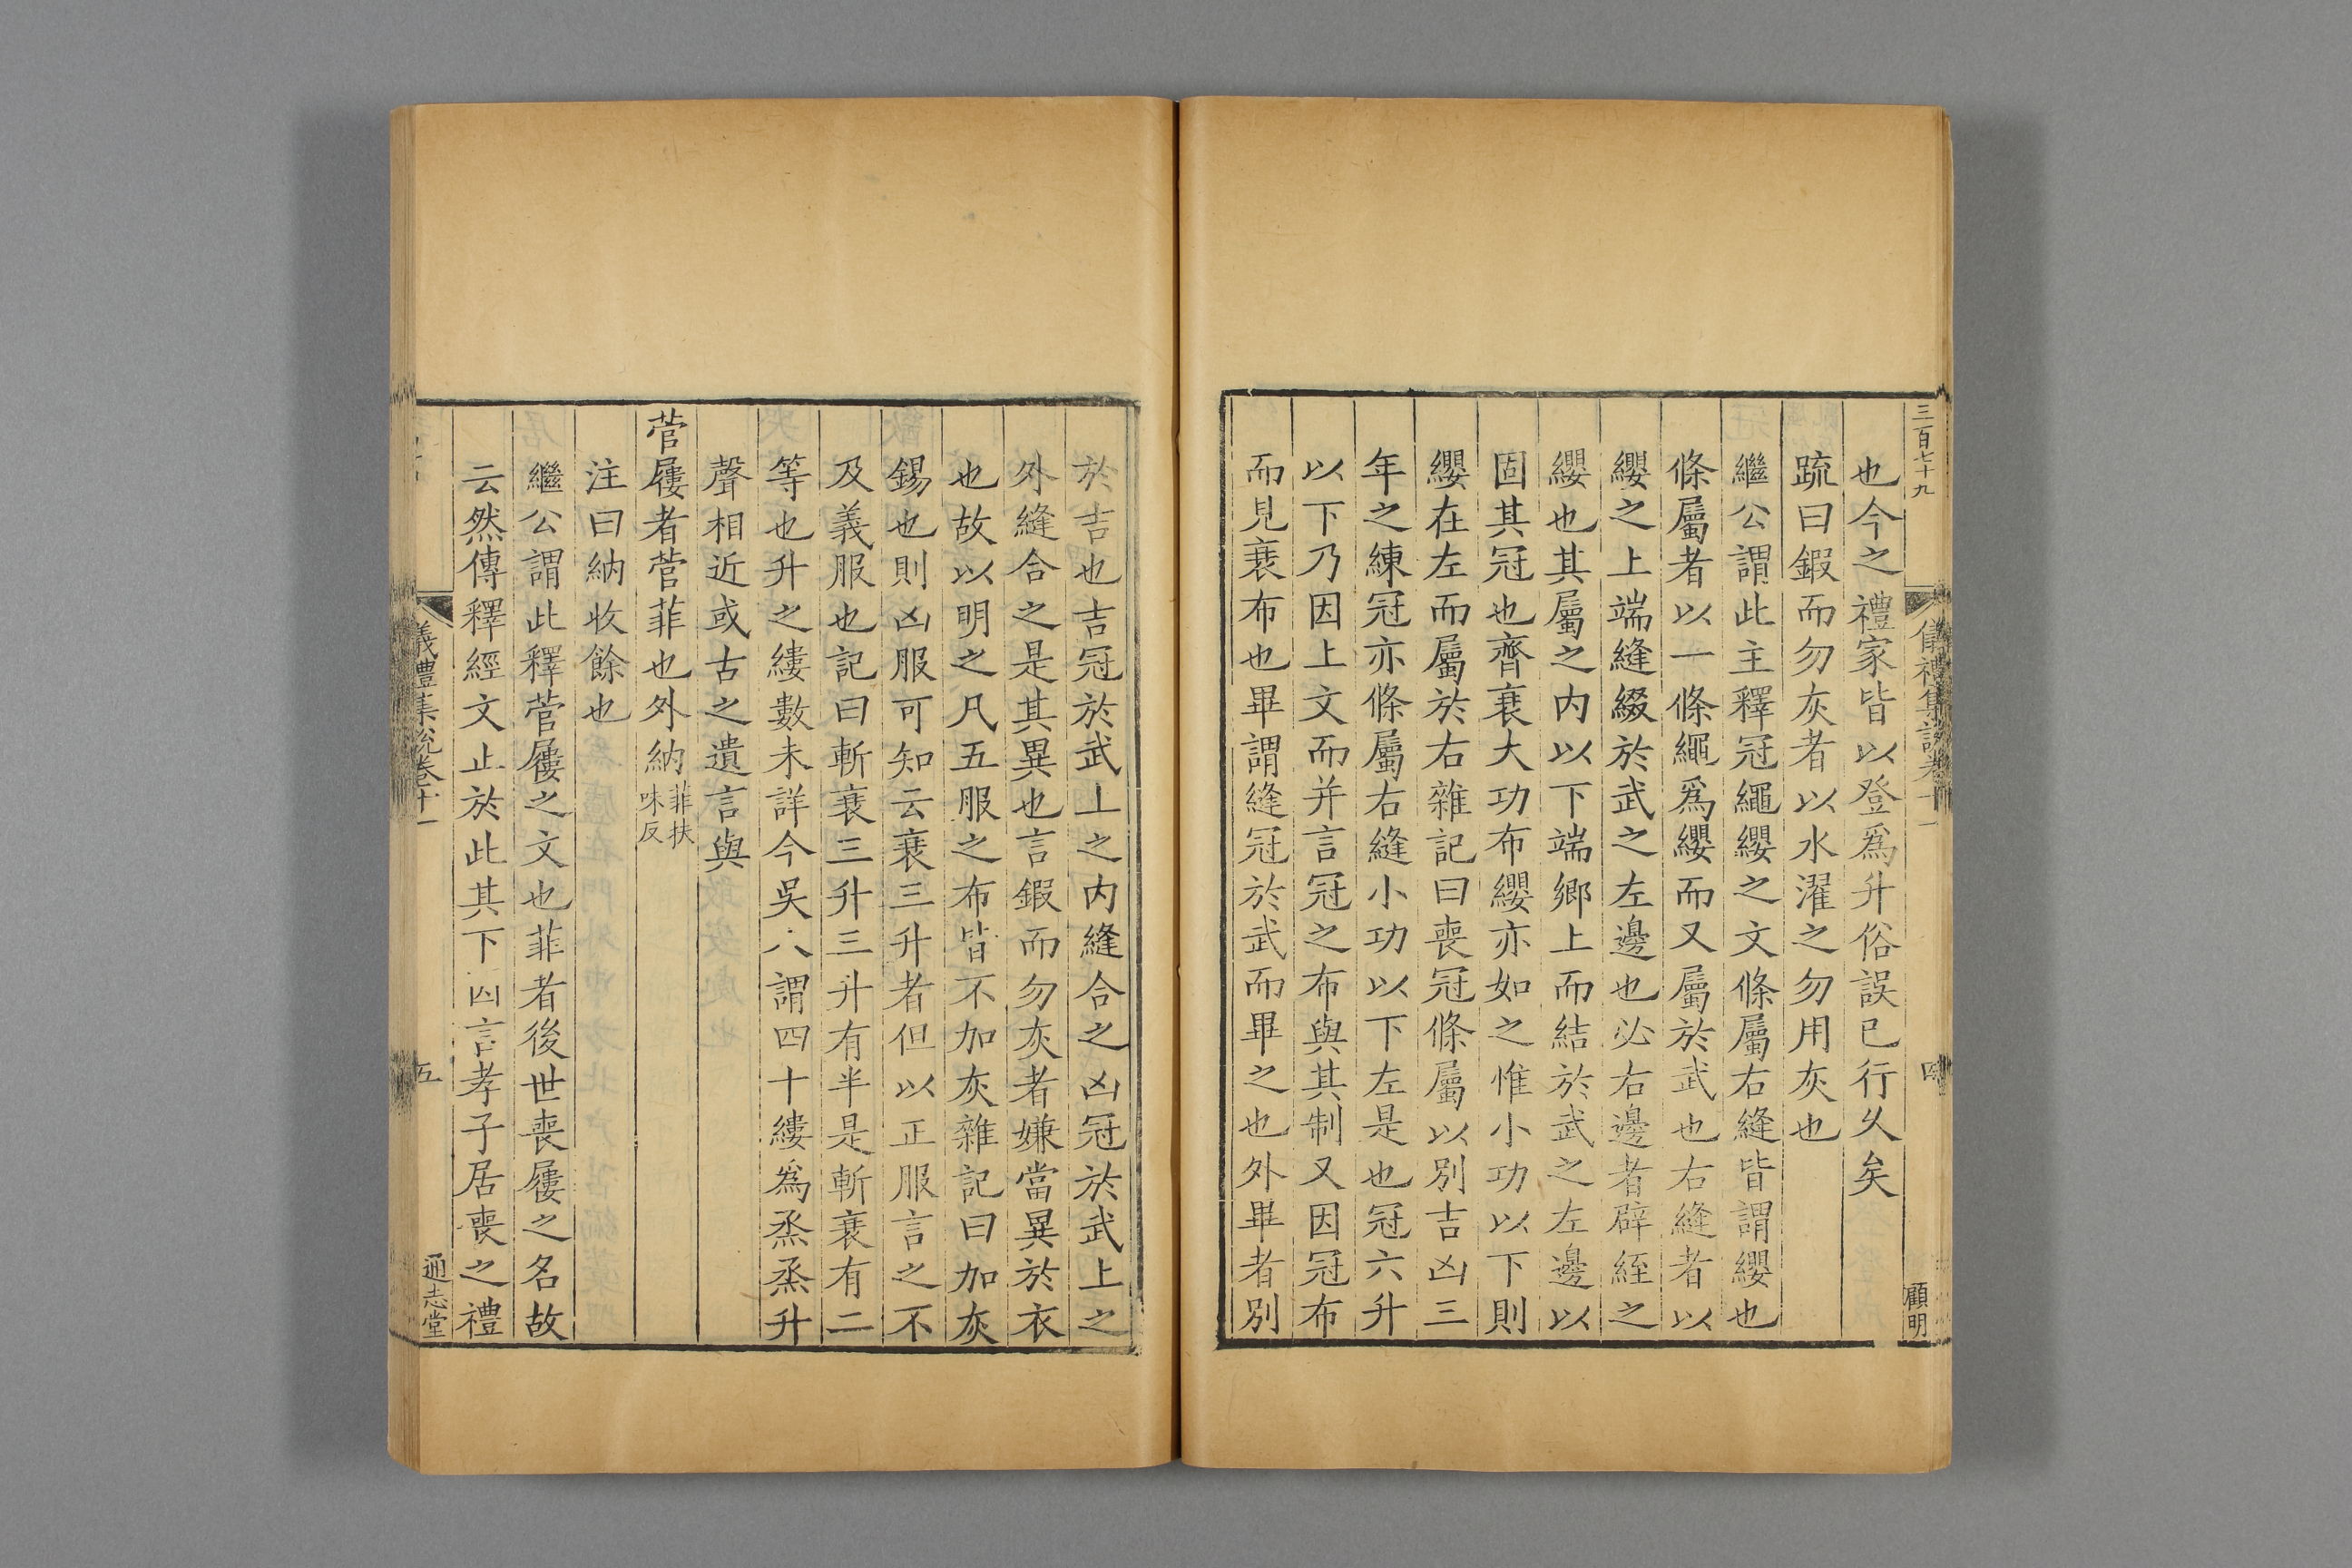 三百七十九
儀禮集說卷十一
四
顧明
也今之禮家皆以登爲升俗誤已行久矣
疏曰鍜而勿灰者以水濯之勿用灰也
繼公謂此主釋冠繩纓之文條屬右縫皆謂纓也
條屬者以一條繩爲纓而又屬於武也右縫者以
纓之上端縫綴於武之左邊也必右邊者辟絰之
纓也其屬之内以下端鄉上而結於武之左邊以
固其冠也齊衰大功布纓亦如之惟小功以下則
纓在左而屬於右雜記曰喪冠條屬以別吉凶三
年之練冠亦條屬右縫小功以下左是也冠六升
以下乃因上文而并言冠之布與其制又因冠布
而見衰布也畢謂縫冠於武而畢之也外畢者別
於吉也吉冠於武上之内縫合之凶冠於武上之
外縫合之是其異也言鍜而勿灰者嫌當異於衣
也故以明之凡五服之布皆不加灰雜記曰加灰
錫也則凶服可知云衰三升者但以正服言之不
及義服也記曰斬衰三升三升有半是斬衰有二
等也升之縷數未詳今吳人謂四十縷爲烝烝升
聲相近或古之遺言與
菅屨者菅菲也外納菲扶味反
注曰納收餘也
繼公謂此釋菅屨之文也菲者後世喪屨之名故
云然傳釋經文止於此其下因言孝子居喪之禮
儀禮集說卷十一
五
通志堂